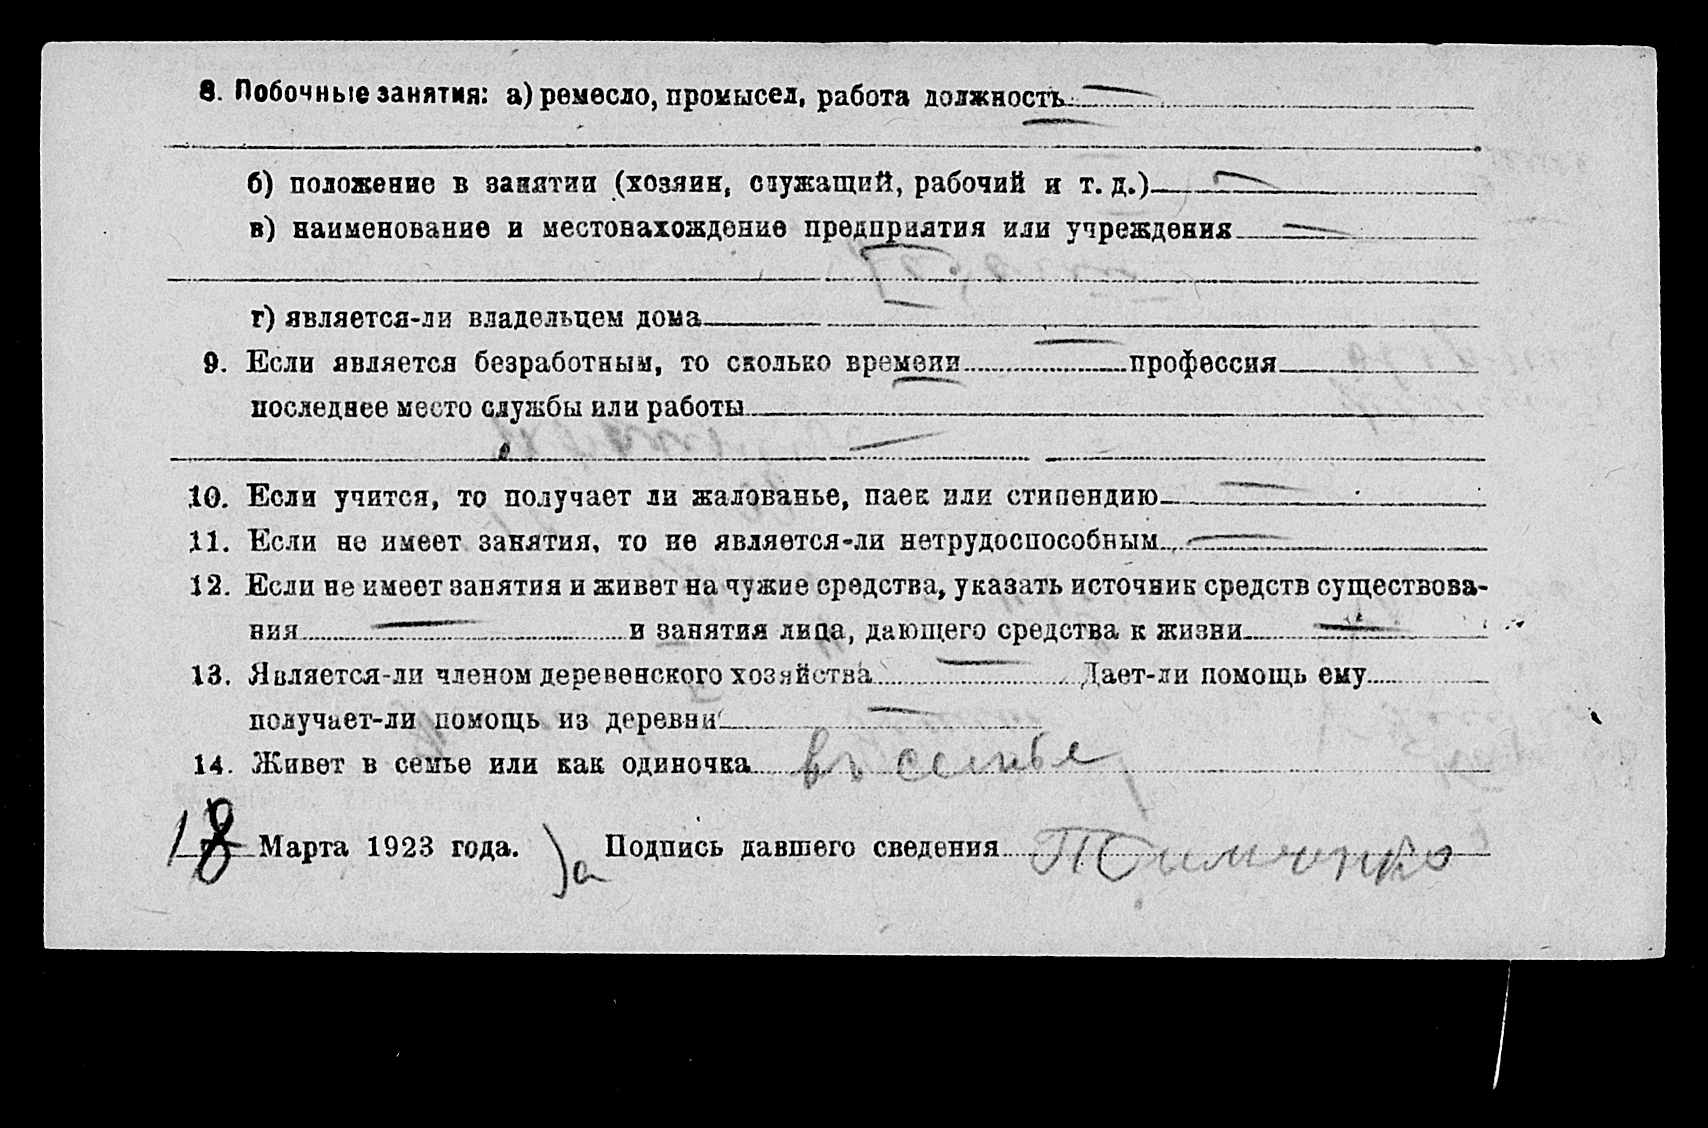 8. Побочные занятия: а) ремесло, промысел, работа должность —
—
б) положение в занятии (хозяин, служащий, рабочий и т. д.) —
в) наименование и местонахождение предприятия или учреждения —
—
г) является-ли владельцем дома —
9. Если является безработным, то сколько времени — профессия
последнее место службы или работы —
—
10. Если учится, то получает ли жалованье, паек или стипендию —
11. Если не имеет занятия, то не является-ли нетрудоспособным —
12. Если не имеет занятия и живет на чужие средства, указать источник средств существова-
ния — и занятия лица, дающего средства к жизни —
13. Является-ли членом деревенского хозяйства — Дает-ли помощь ему
получает-ли помощь из деревни —
14. Живет в семье или как одиночка въ семье
18 Марта 1923 года. За Подпись давшего сведения Тимченко